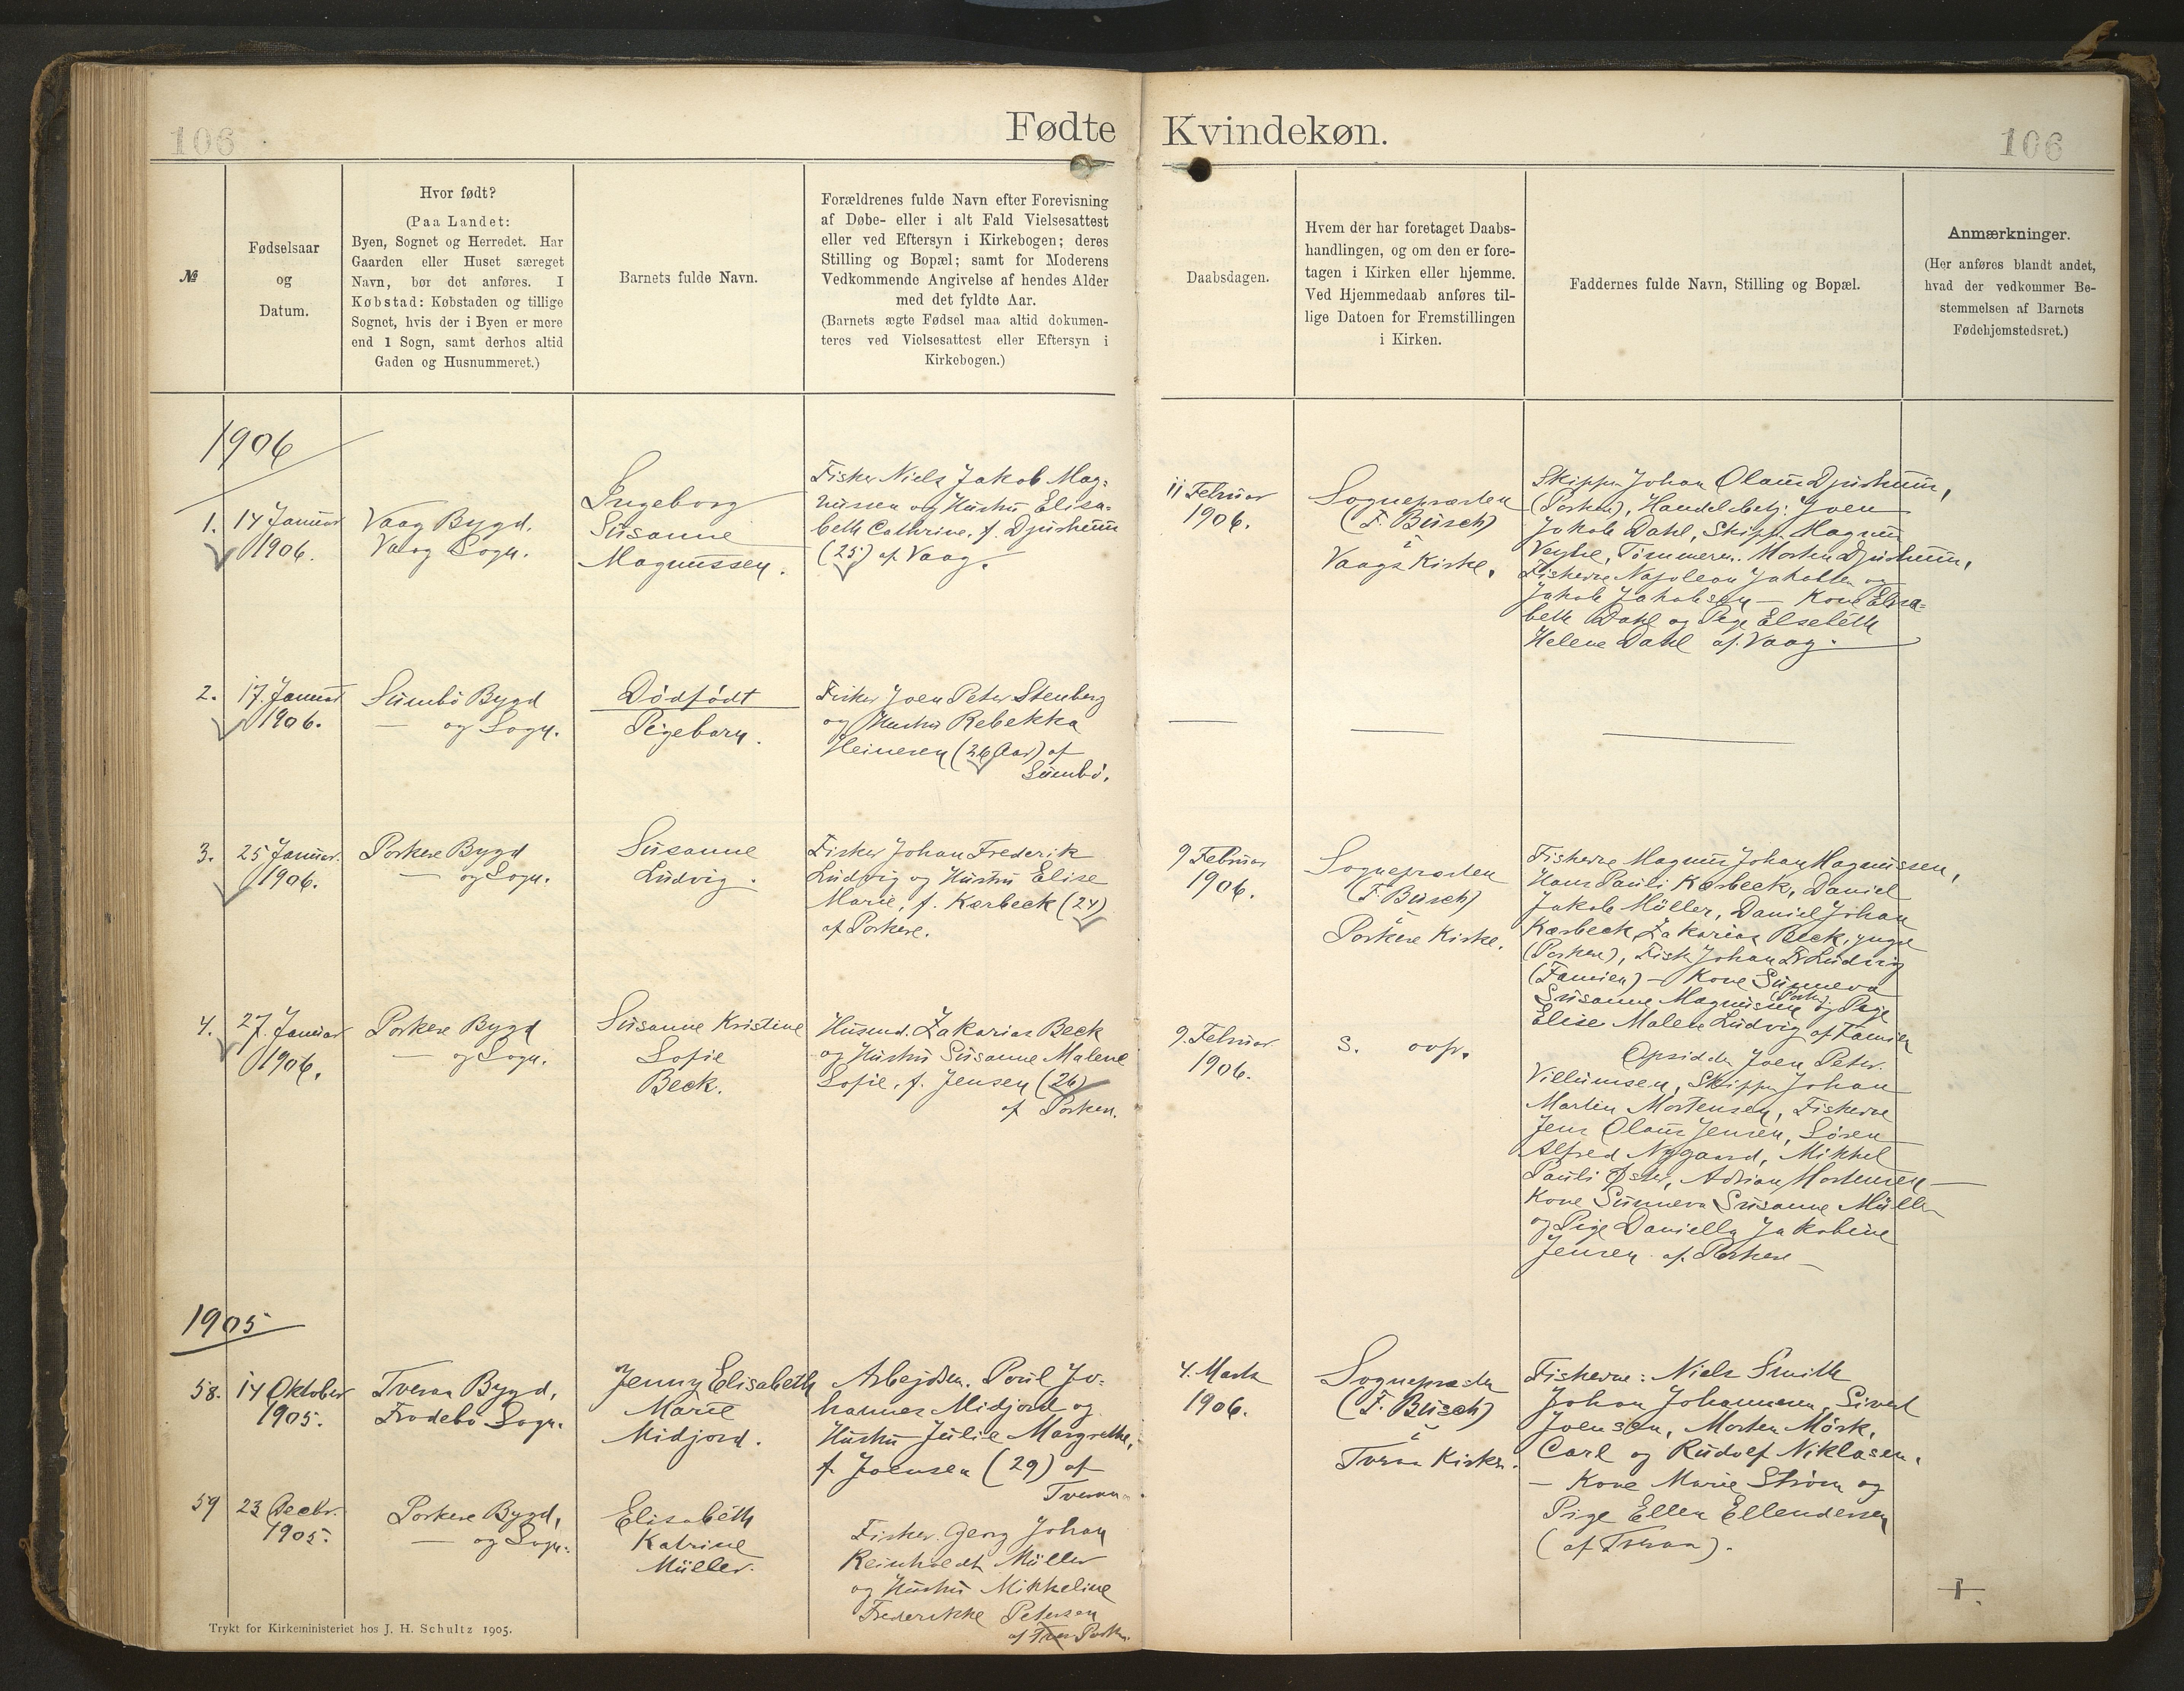 106
Fødte Kvindekøn.
106
№
Fødselsaar
og
Datum.
Hvor født?
(Paa Landet:
Byen, Sognet og Herredet. Har
Gaarden eller Huset særeget
Navn, bør det anføres. I
Købstad: Købstaden og tillige
Sognet, hvis der i Byen er mere
end 1 Sogn, samt derhos altid
Gaden og Husnummeret.)
Barnets fulde Navn.
Forældrenes fulde Navn efter Forevisning
af Døbe- eller i alt Fald Vielsesattest
eller ved Eftersyn i Kirkebogen; deres
Stilling og Bopæl; samt for Moderens
Vedkommende Angivelse af hendes Alder
med det fyldte Aar.
(Barnets ægte Fødsel maa altid dokumen-
teres ved Vielsesattest eller Eftersyn i
Kirkebogen.)
Daabsdagen.
Hvem der har foretaget Daabs-
handlingen, og om den er fore-
tagen i Kirken eller hjemme.
Ved Hjemmedaab anføres til-
lige Datoen for Fremstillingen
i Kirken.
Faddernes fulde Navn, Stilling og Bopæl.
Anmærkninger.
(Her anføres blandt andet,
hvad der vedkommer Be-
stemmelsen af Barnets
Fødehjemstedsret.)
1906
1.
14 Januar
1906.
Vaag Bygd.
Vaag Sogn.
Ingeborg
Susanne
Magnussen.
Fisker Niels Jakob Mag=
nussen og Hustru Elisa=
beth Cathrine, f. Djurhuus
(25) af Vaag.
11 Februar
1906.
Sognepræsten
(F. Busch)
i
Vaags Kirke.
Skipper Johan Olaus Djurhuus,
(Porkere), Handelsbetj. Joen
Jakob Dahl, Skipp. Magnus
Veyhe, Tømmerm. Morten Djurhuus,
Fiskerne Napoleon Jakobsen og
Jakob Jakobsen — Kone Elisa=
beth Dahl og Pige Elsebeth
Helene Dahl af Vaag.
2.
17. Januar
1906.
Sumbø Bygd
— og Sogn.
Dødfødt
Pigebarn.
Fisker Joen Peter Stenberg
og Hustru Rebekka
Heinesen (26 Aar) af
Sumbø.
3.
25 Januar.
1906.
Porkere Bygd
— og Sogn.
Susanne
Ludvig.
Fisker Johan Frederik
Ludvig og Hustru Elise
Marie, f. Kærbeck (24)
af Porkere.
9 Februar
1906.
Sognepræsten
(F. Busch)
i
Porkere Kirke.
Fiskerne Magnus Johan Magnussen,
Hans Pauli Kærbeck, Daniel
Jakob Müller, Daniel Johan
Kærbeck, Zakarias Beck, yngre
(Porkere), Fisk. Johan Fr Ludvig
(Famien) — Kone Sunneva
Susanne Magnussen (Pork.) og Pige
Elise Malene Ludvig af Famien
4.
27. Januar
1906.
Porkere Bygd
— og Sogn.
Susanne Kristine
Sofie
Beck.
Husmd. Zakarias Beck
og Hustru Susanne Malene
Sofie, f. Jensen (26)
af Porkere.
9. Februar
1906.
s. ovfr.
Opsidder Joen Peter
Villumsen, Skipper Johan
Martin Mortensen, Fiskerne
Jens Olaus Jensen, Søren
Alfred Nygaard, Mikkel
Pauli Øster, Adrian Mortensen —
Kone Sunneva Susanne Müller
og Pige Daniella Jakobine
Jensen af Porkere —
1905
58.
14 Oktober
1905.
Tveraa Bygd,
Frodebø Sogn.
Jenny Elisabeth
Marie
Midjord.
Arbejdsm. Poul Jo=
hannes Midjord og
Hustru Julie Margrethe,
f. Joensen (29) af
Tveraa.
4. Marts
1906.
Sognepræsten
(F. Busch)
i
Tveraa Kirke.
Fiskerne: Niels Smith
Johan Johannesen, Sivert
Joensen, Morten Mörk,
Carl og Rudolf Niklasen,
— Kone Marie Strøm og
Pige Ellen Ellendersen
(af Tveraa).
59
23 Decbr.
1905.
Porkere Bygd,
— og Sogn.
Elisabeth
Katrine
Müller.
Fisker Georg Johan
Reinholdt Müller
og Hustru Mikkeline
Frederikke Petersen
af Porkere.
Trykt for Kirkeministeriet hos J. H. Schultz 1905.